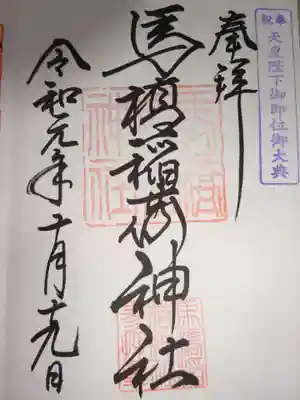 奉祝
天皇陛下御即位御大典
奉拝
馬橋稲荷神社
令和元年十月十九日